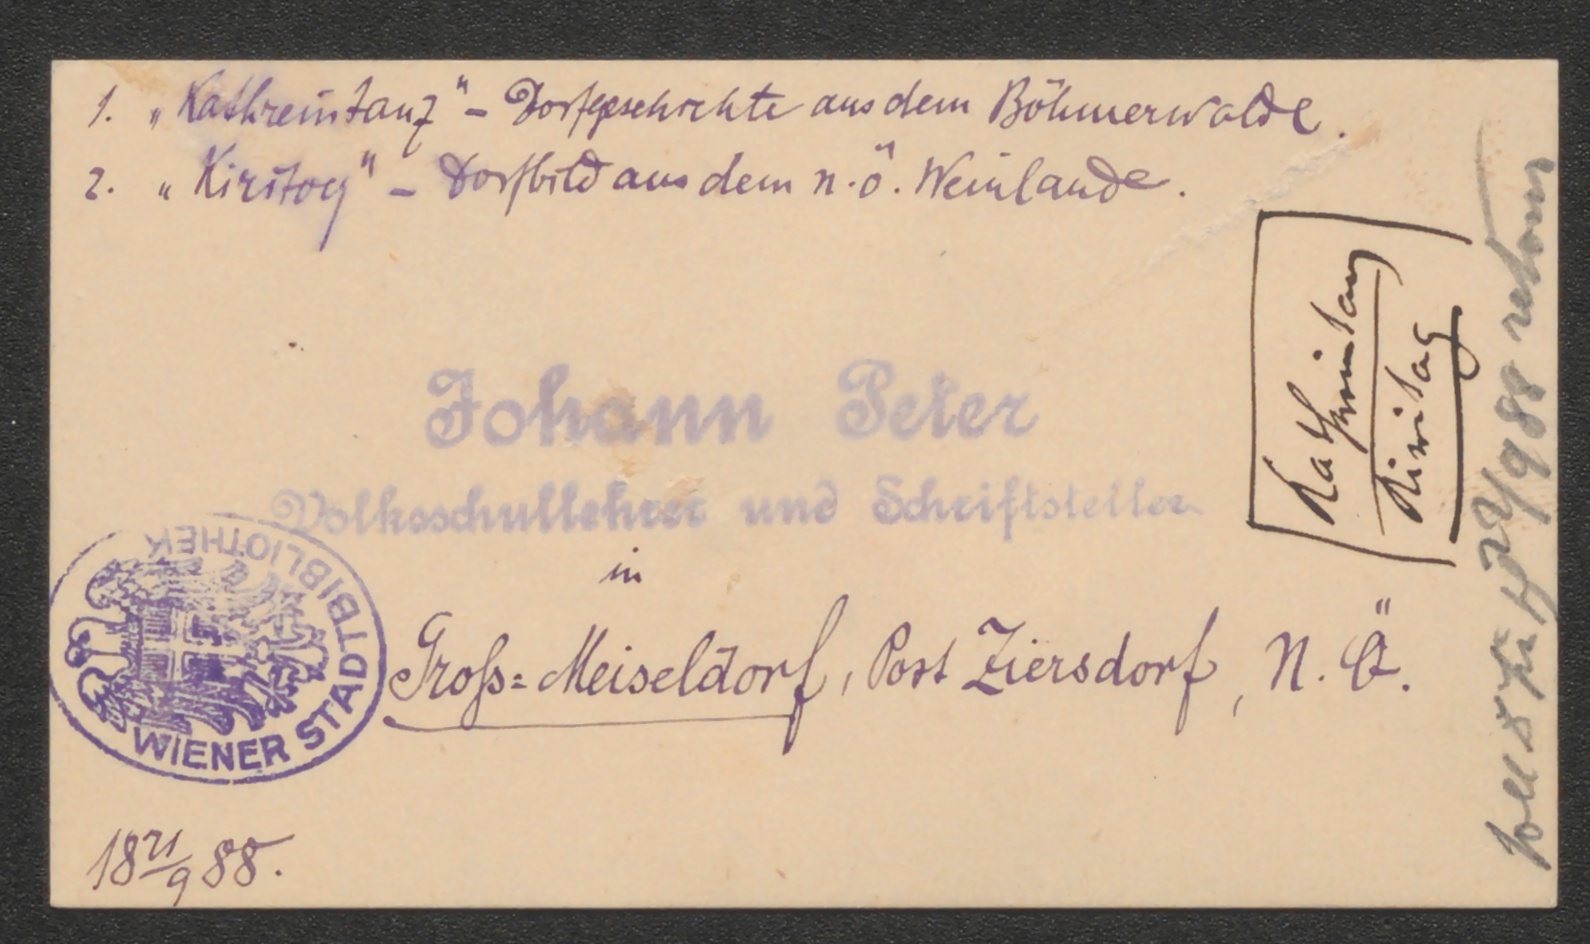 1. „Kathreintanz" – Dorfgeschichte aus dem Böhmerwalde.
2. „Kiritog" – Dorfbild aus dem n.ö. Weinlande.
Johann Peter
Volksschullehrer und Schriftsteller
in
Gross-Meiseldorf, Post Ziersdorf, N. Ö.
18 21/9 88.
WIENER STADTBIBLIOTHEK
Kathreintanz
Kiritag
22/9 88 retour